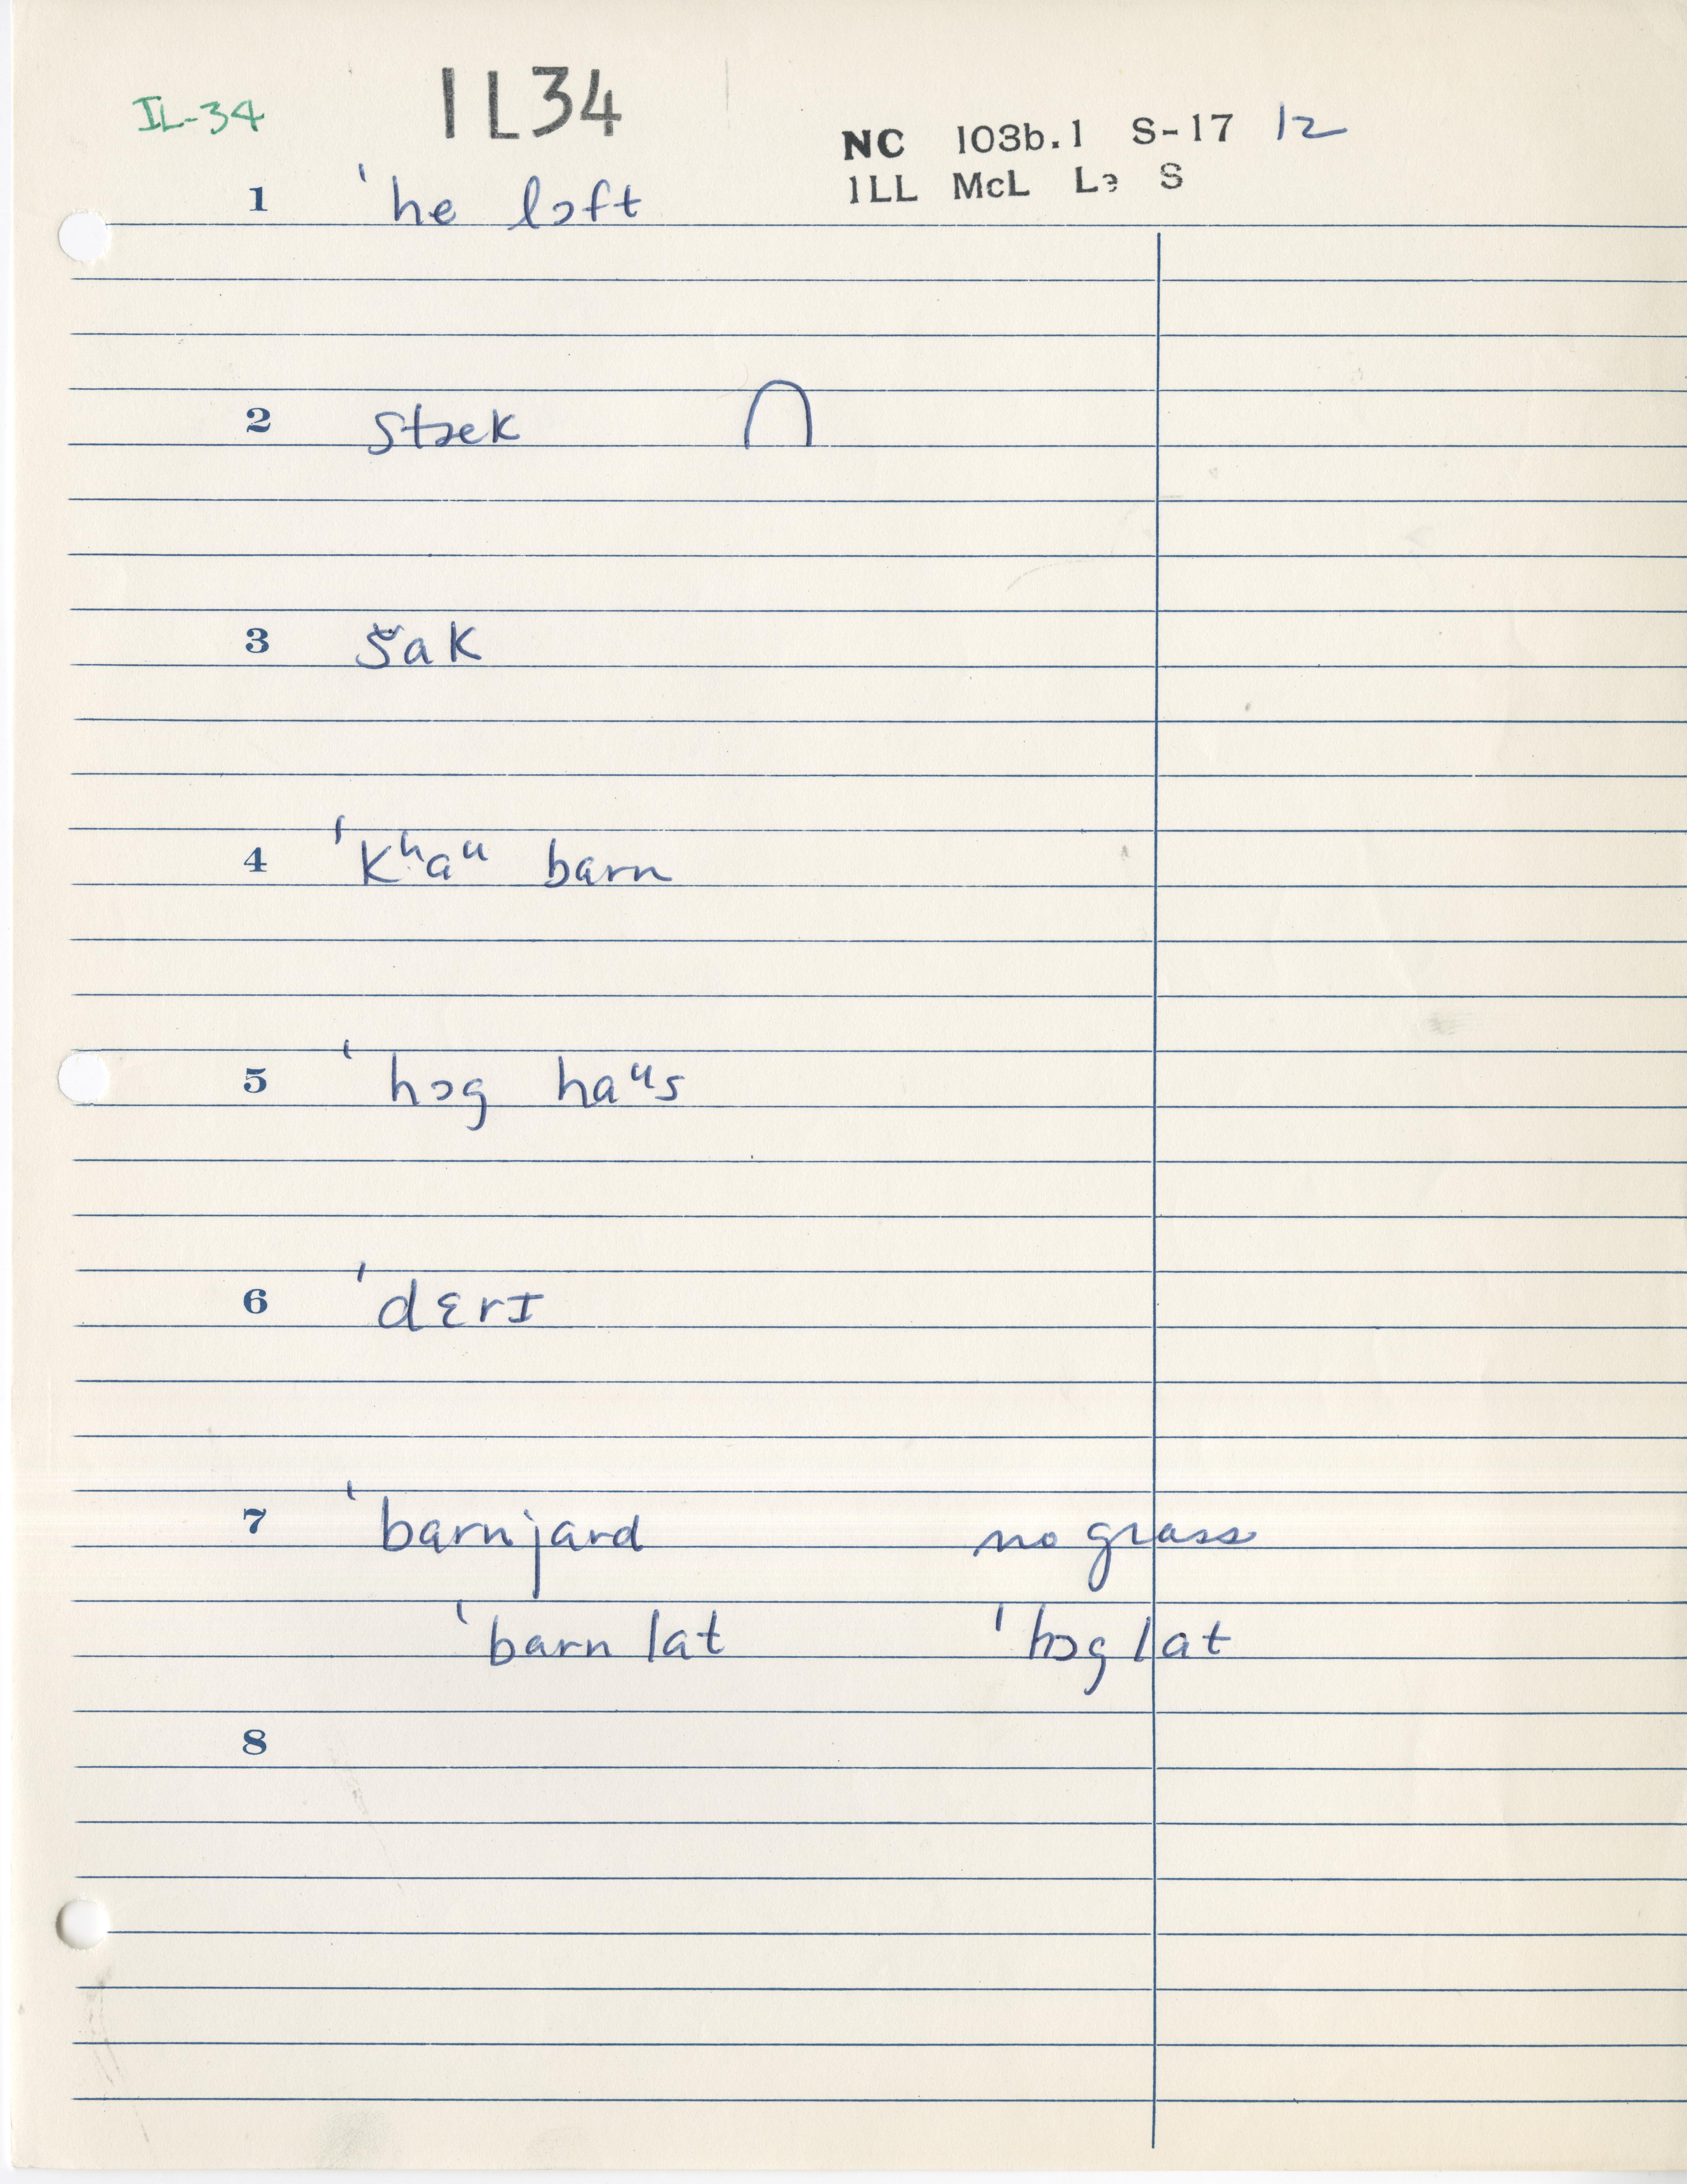 IL-34 IL34
NC 103b.1 S-17 12
ILL McL Le S
1 ˈhe lɔft
2 stæk
3 šak
4 ˈkʰaᵘ barn
5 ˈhɔg haᵘs
6 ˈdɛrɪ
7 ˈbarnjard no grass
ˈbarn lat ˈhɔg lat
8